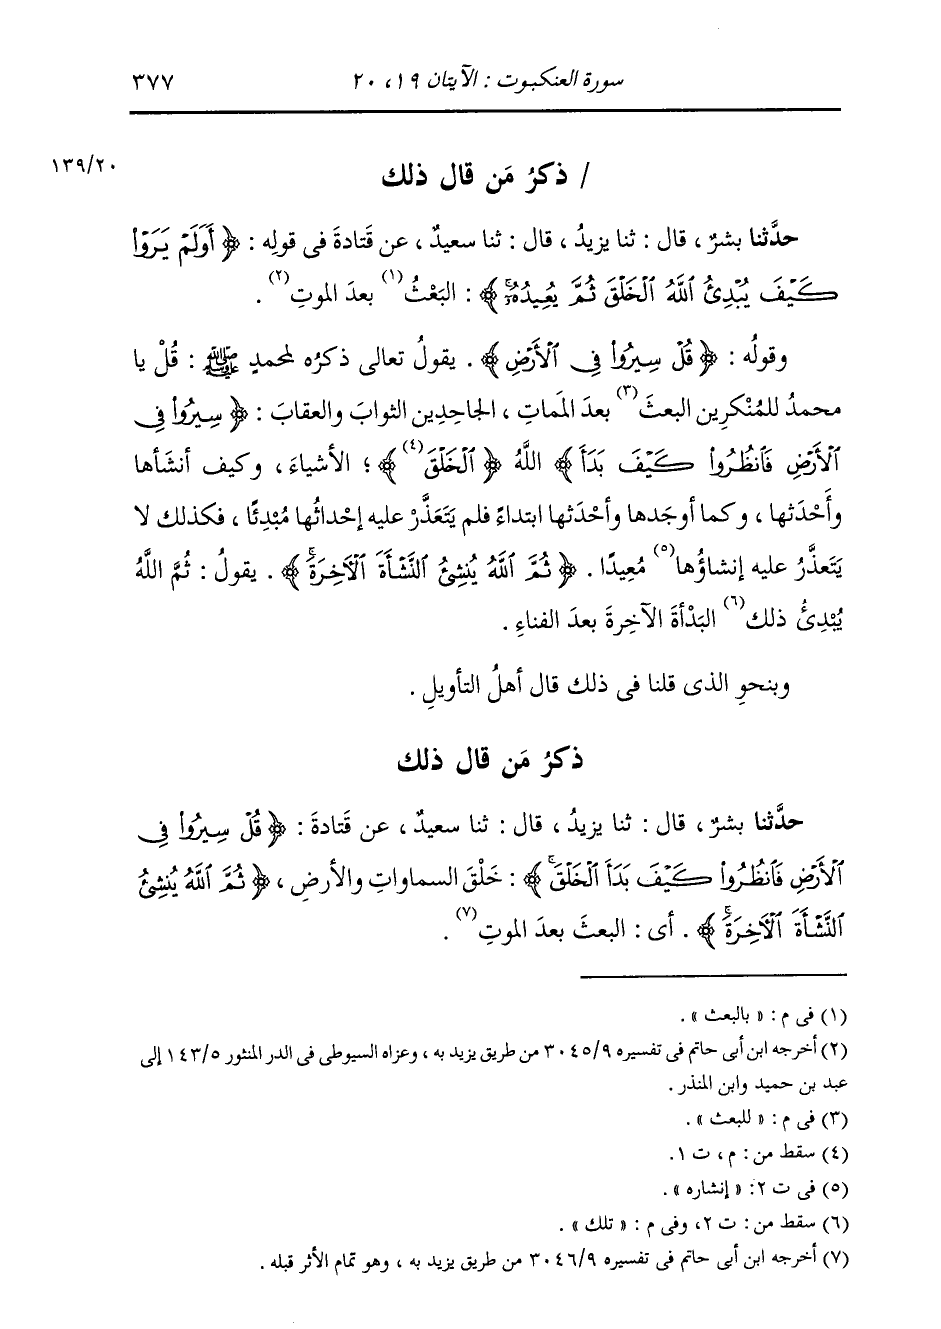 سورة العنكبوت : الآيتان ١٩ ، ٢٠ ٣٧٧
/ ذكرُ مَن قال ذلك ١٣٩/٢٠
حدَّثنا بشرٌ ، قال : ثنا يزيدُ ، قال : ثنا سعيدٌ ، عن قَتادةَ فى قولِه : ﴿ أَوَلَمْ يَرَوْا
كَيْفَ يُبْدِئُ ٱللَّهُ ٱلْخَلْقَ ثُمَّ يُعِيدُهُۥٓ ﴾ : البَعْثُ (١) بعدَ الموتِ (٢) .
وقولُه : ﴿ قُلْ سِيرُوا۟ فِى ٱلْأَرْضِ ﴾ . يقولُ تعالى ذكرُه لمحمدٍ ﷺ : قُلْ يا
محمدُ للمُنْكرِين البعثَ (٣) بعدَ المَماتِ ، الجاحِدِين الثوابَ والعقابَ : ﴿ سِيرُوا۟ فِى
ٱلْأَرْضِ فَٱنظُرُوا۟ كَيْفَ بَدَأَ ﴾ اللَّهُ ﴿ ٱلْخَلْقَ (٤) ﴾ ؛ الأشياءَ ، وكيف أنشَأها
وأَحْدَثها ، وكما أوجَدها وأحْدَثها ابتداءً فلم يَتَعذَّرْ عليه إحْداثُها مُبْدِئًا ، فكذلك لا
يَتَعذَّرُ عليه إنشاؤُها (٥) مُعِيدًا . ﴿ ثُمَّ ٱللَّهُ يُنشِئُ ٱلنَّشْأَةَ ٱلْأَخِرَةَ ﴾ . يقولُ : ثُمَّ اللَّهُ
يُبْدِئُ ذلك (٦) البَدْأةَ الآخِرةَ بعدَ الفناءِ .
وبنحوِ الذى قلنا فى ذلك قال أهلُ التأويلِ .
ذكرُ مَن قال ذلك
حدَّثنا بشرٌ ، قال : ثنا يزيدُ ، قال : ثنا سعيدٌ ، عن قَتادةَ : ﴿ قُلْ سِيرُوا۟ فِى
ٱلْأَرْضِ فَٱنظُرُوا۟ كَيْفَ بَدَأَ ٱلْخَلْقَ ﴾ : خَلْقَ السماواتِ والأرضِ ، ﴿ ثُمَّ ٱللَّهُ يُنشِئُ
ٱلنَّشْأَةَ ٱلْأَخِرَةَ ﴾ . أى : البعثَ بعدَ الموتِ (٧) .
(١) فى م : « بالبعث » .
(٢) أخرجه ابن أبى حاتم فى تفسيره ٣٠٤٥/٩ من طريق يزيد به ، وعزاه السيوطى فى الدر المنثور ١٤٣/٥ إلى
عبد بن حميد وابن المنذر .
(٣) فى م : « للبعث » .
(٤) سقط من : م ، ت ١.
(٥) فى ت ٢: « إنشاره » .
(٦) سقط من : ت ٢، وفى م : « تلك » .
(٧) أخرجه ابن أبى حاتم فى تفسيره ٣٠٤٦/٩ من طريق يزيد به ، وهو تمام الأثر قبله .